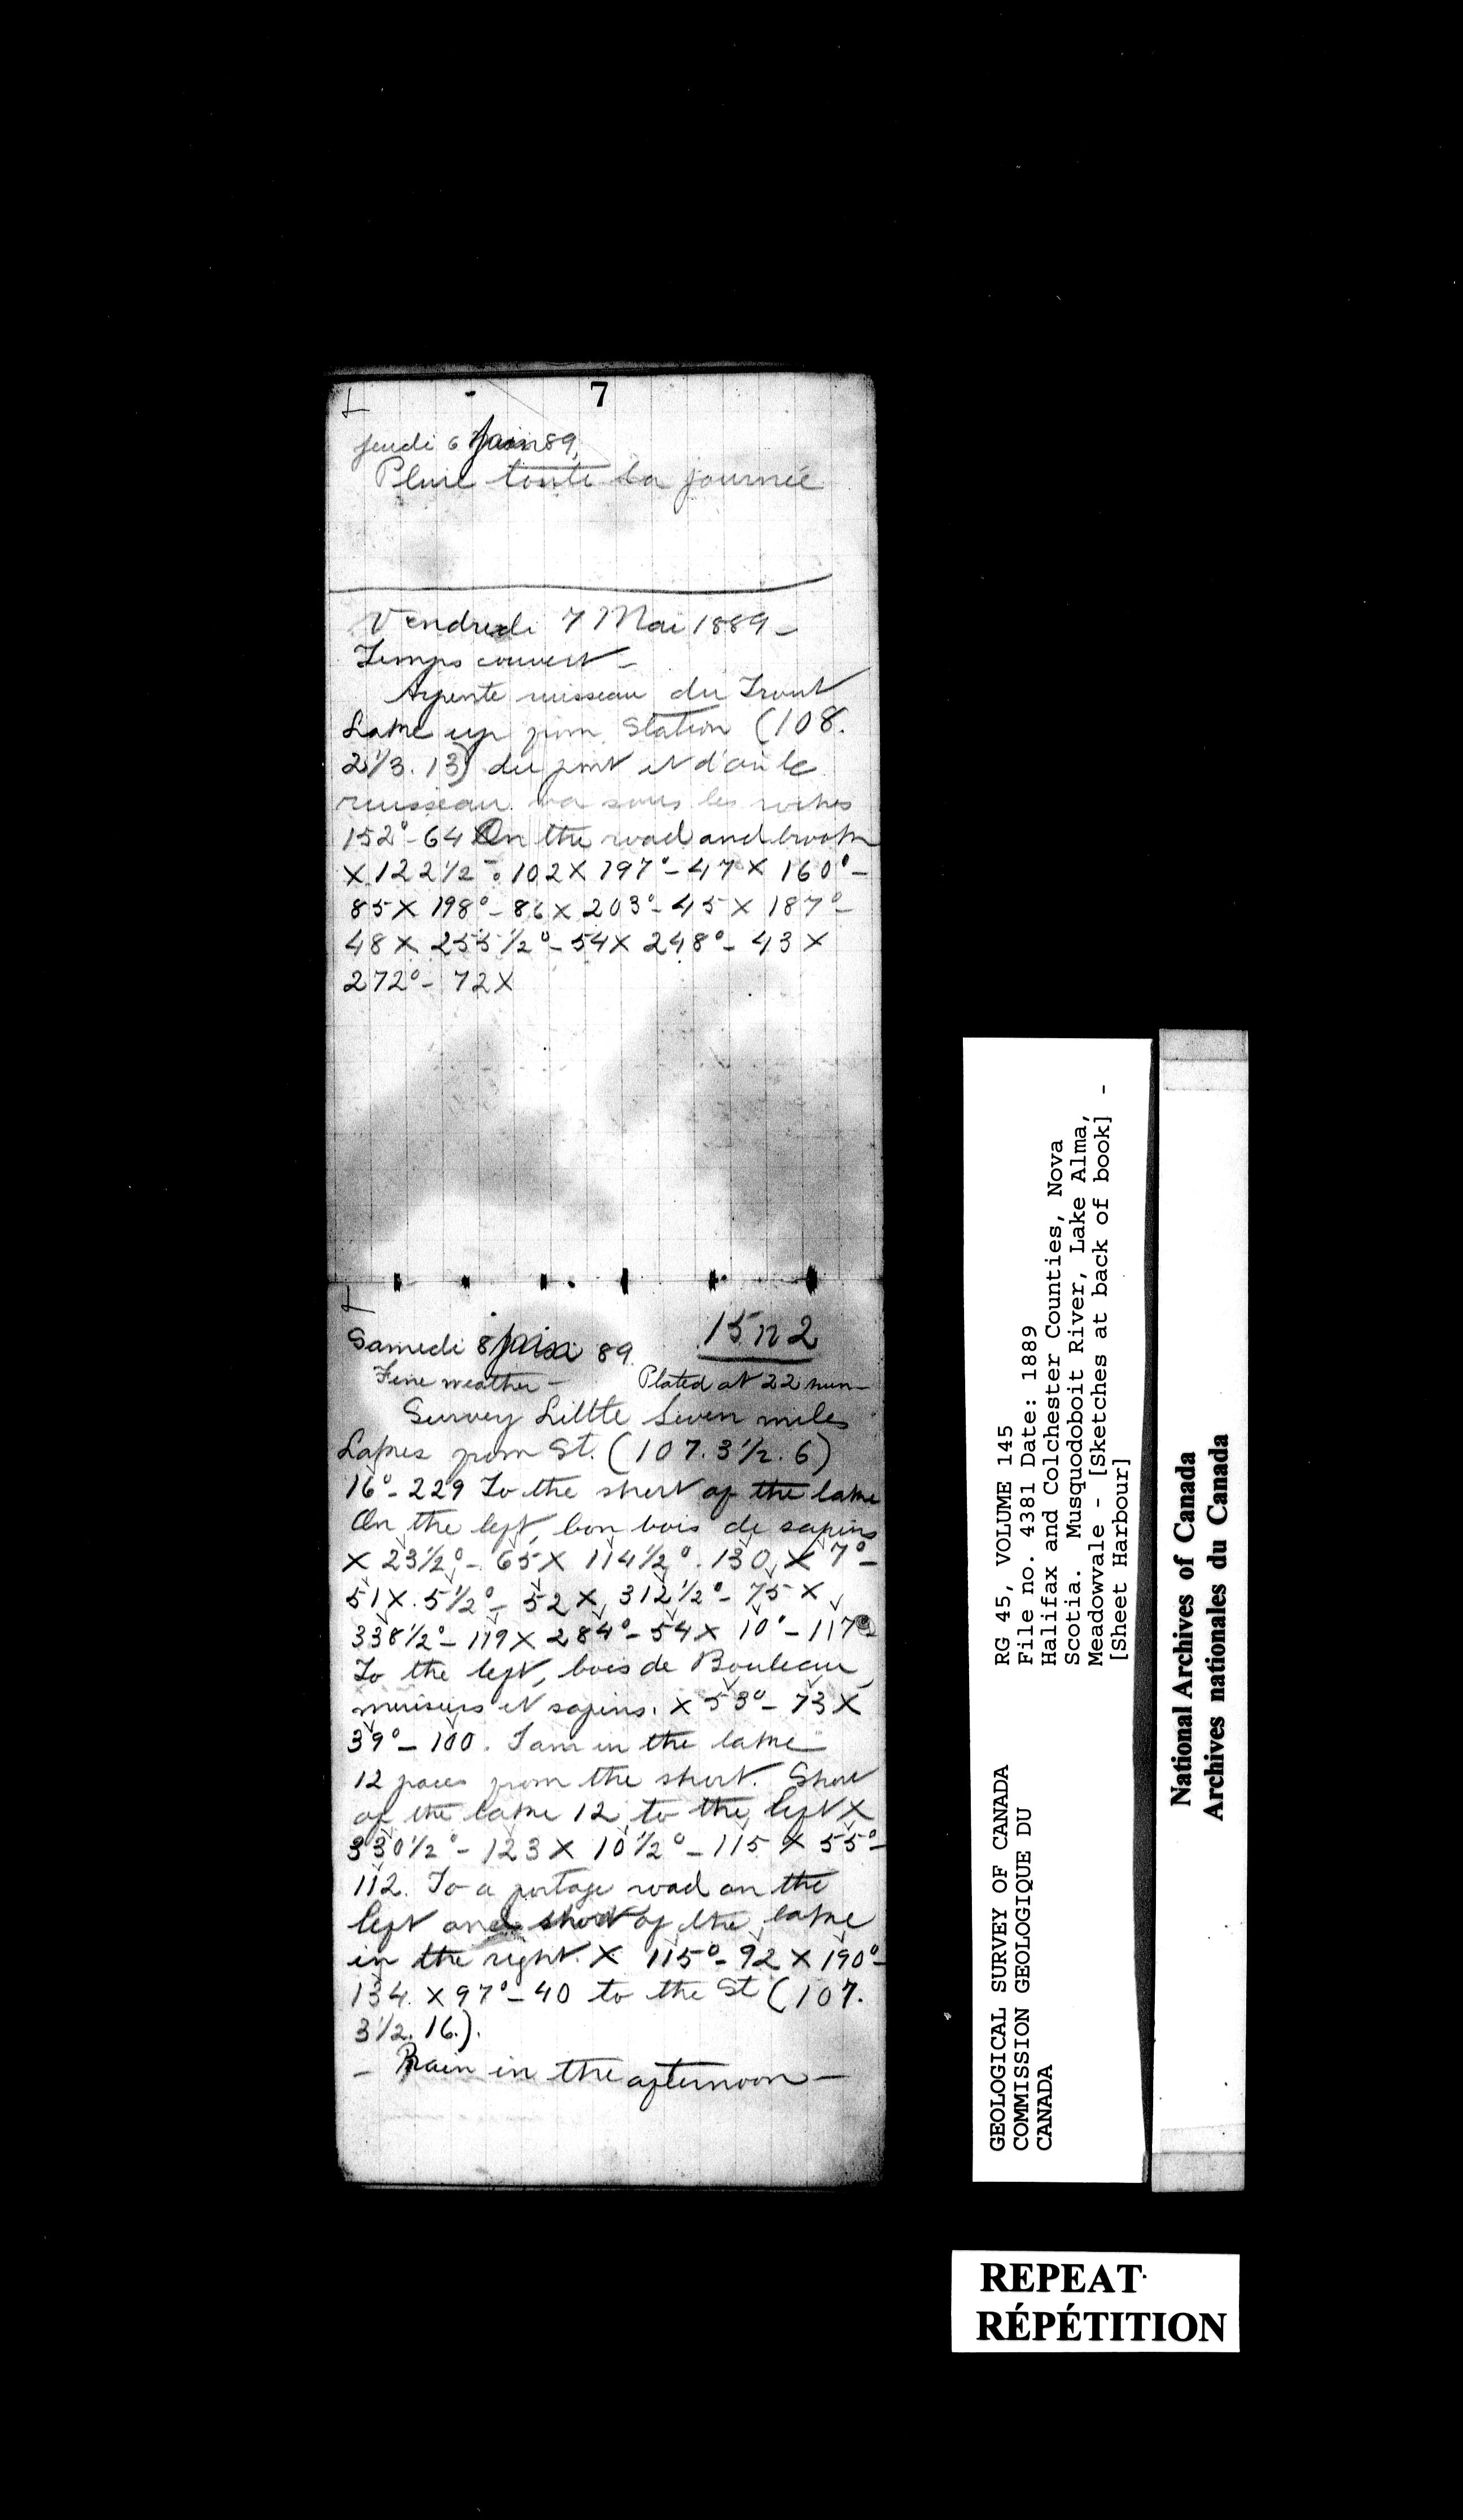 7
jeudi 6 juin 89,
Pluie toute la journée
Vendredi 7 Mai 1889 –
Temps couvert –
Arpente ruisseau du Trout
Lake up from Station (108.
2 1/3. 13) du pont et d'où le
ruisseau va sous les roches
152° - 64 On the road and brook
X 122 1/2 - 102 X 197° - 47 X 160° -
85 X 198° - 86 X 203° - 45 X 187° -
48 X 255 1/2° - 54 X 248° - 43 X
272° - 72 X
Samedi 8 juin 89. 15 n 2
Fine weather – Plated at 22 min –
Survey Little Seven miles
Lakes from St. (107. 3 1/2. 6)
16° - 229 To the short of the lake
On the left, bon bois de sapins
X 23 1/2° - 65 X 114 1/2° . 130 X 7° -
51 X. 5 1/2° - 52 X 312 1/2° - 75 X
338 1/2° - 119 X 284° - 54 X 10° - 117
To the left, bois de Bouleau,
merisiers et sapins. X 53° - 73 X
39° - 100. I am in the lake
12 paces from the short. Short
of the lake 12 to the left X
330 1/2° - 123 X 10 1/2° - 115 X 55° -
112. To a portage road on the
left and short of the lake
in the right. X 115° - 92 X 190° -
134. X 97° - 40 to the St (107.
3 1/2. 16.).
– Rain in the afternoon –
GEOLOGICAL SURVEY OF CANADA
COMMISSION GEOLOGIQUE DU
CANADA
RG 45, VOLUME 145
File no. 4381 Date: 1889
Halifax and Colchester Counties, Nova
Scotia. Musquodoboit River, Lake Alma,
Meadowvale - [Sketches at back of book] -
[Sheet Harbour]
National Archives of Canada
Archives nationales du Canada
REPEAT
RÉPÉTITION